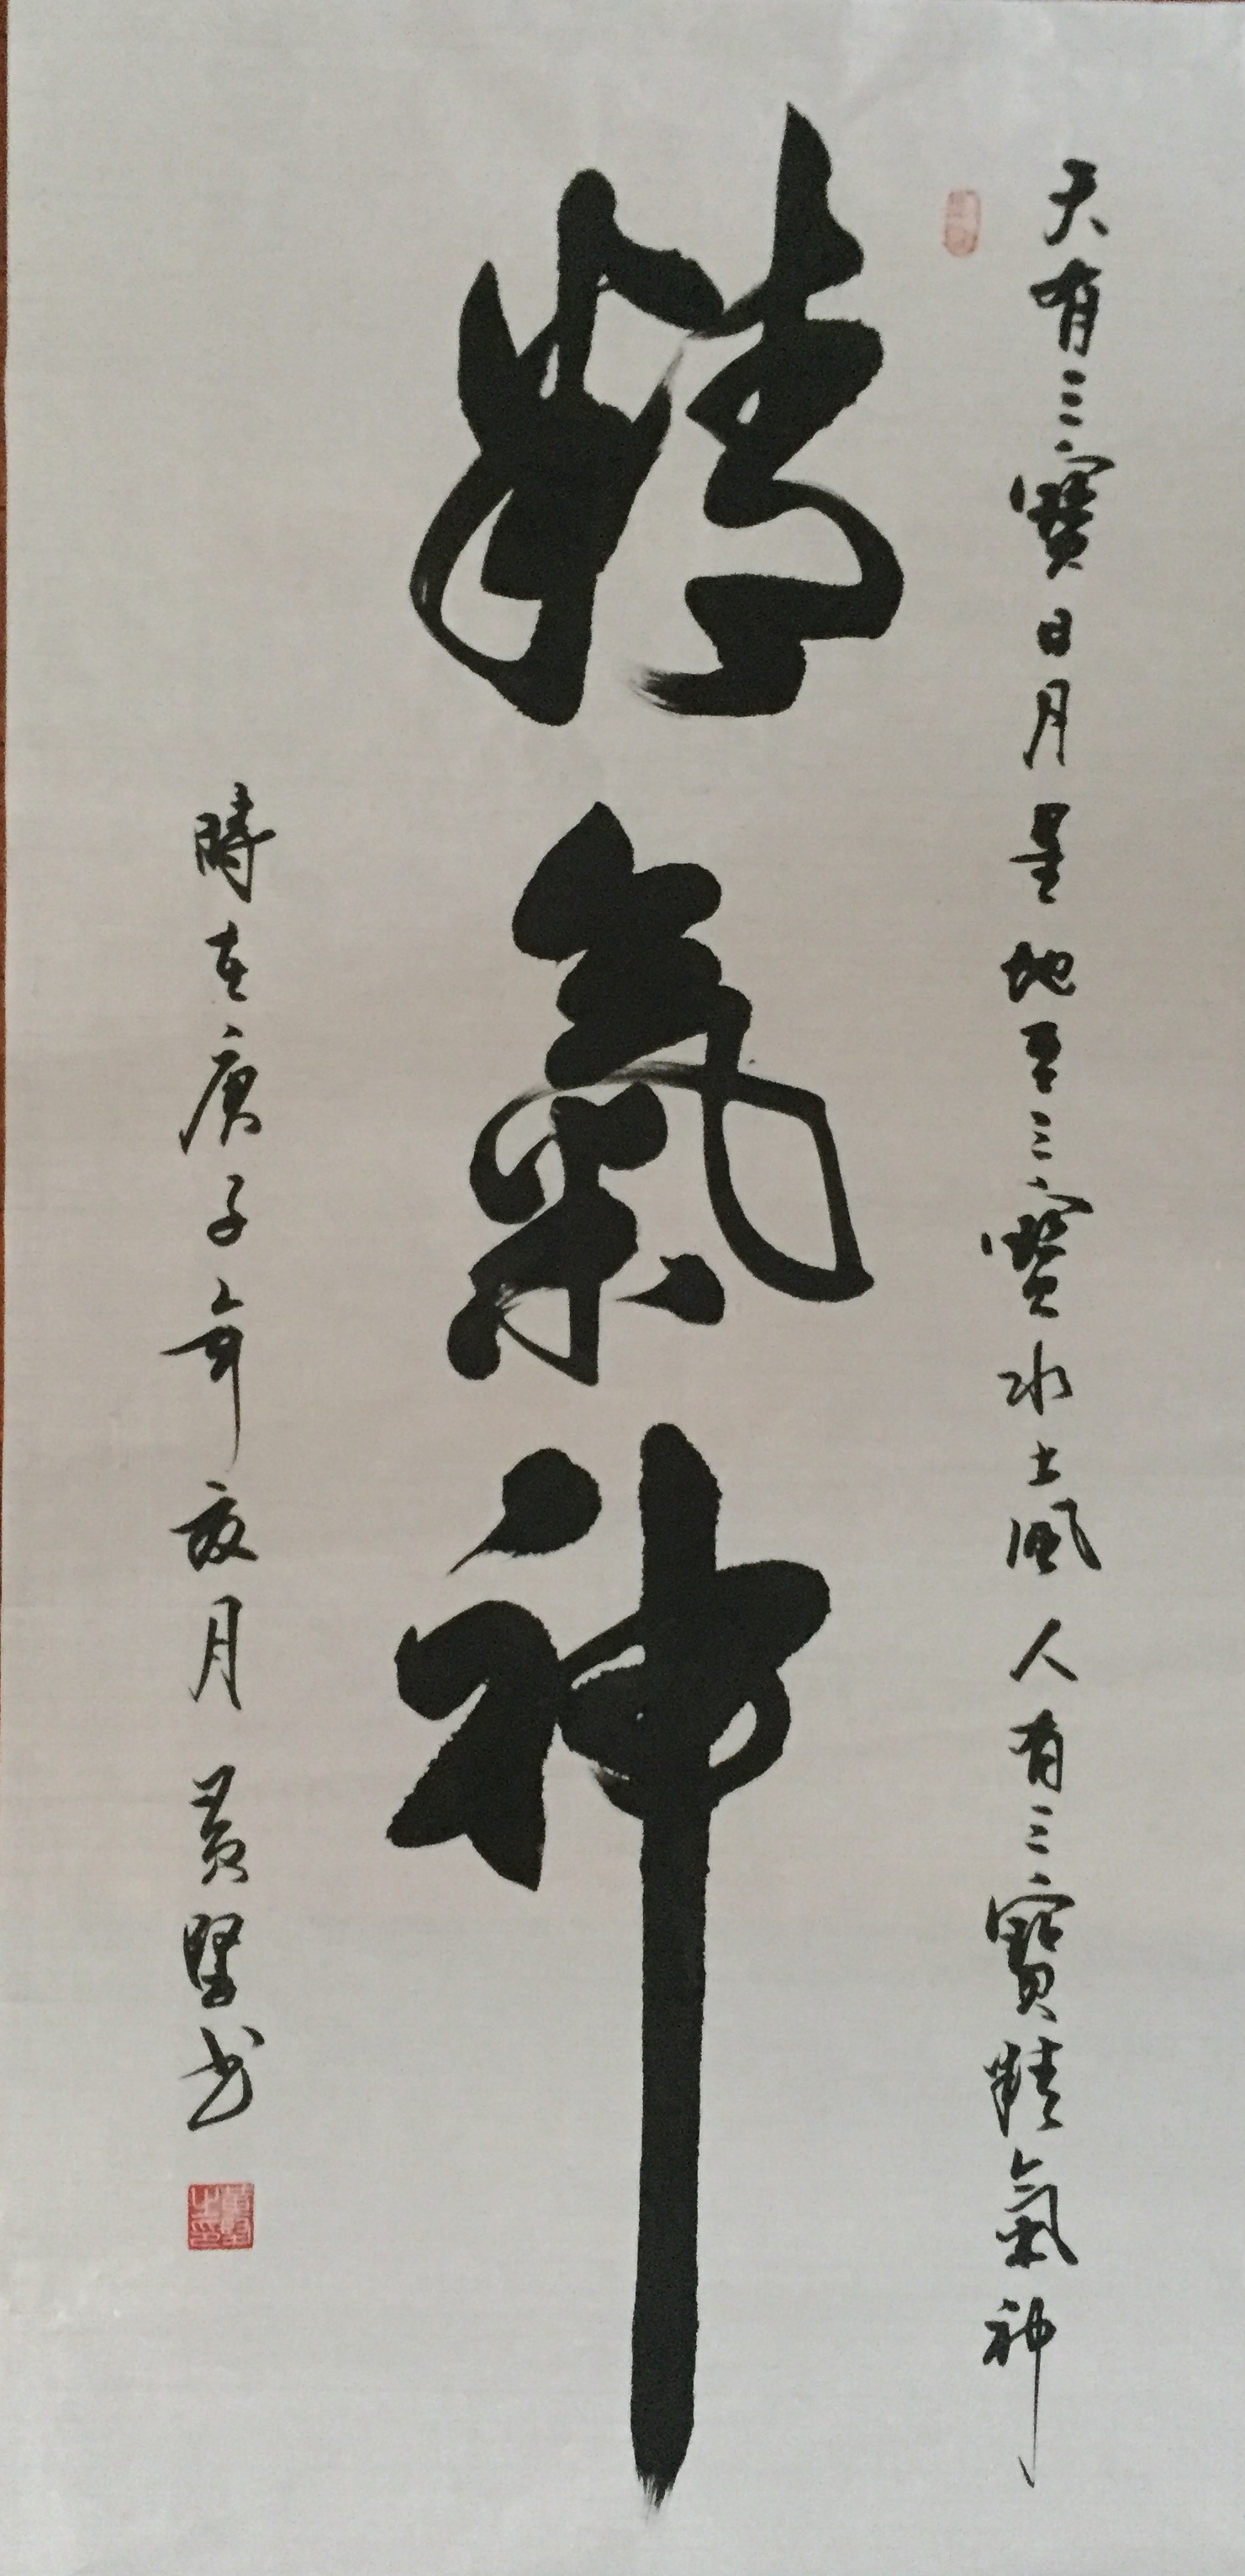 天有三寶日月星地有三寶水土風人有三寶精氣神
精氣神
時在庚子年月黃堅書
黃堅之印